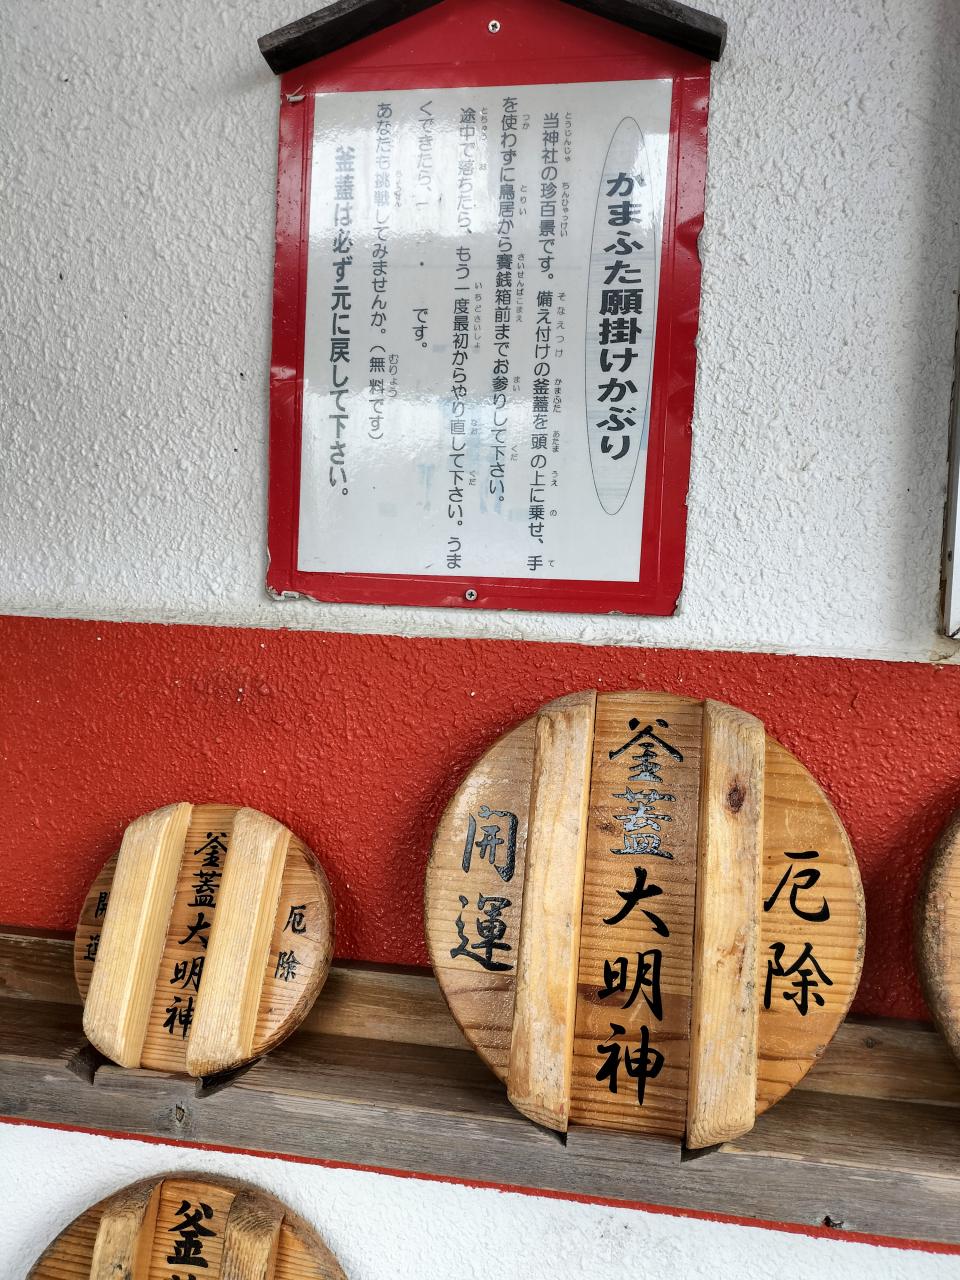 かまふた願掛けかぶり
当神社の珍百景です。備え付けの釜蓋を頭の上に乗せ、手
を使わずに鳥居から賽銭箱前までお参りして下さい。
途中で落ちたら、もう一度最初からやり直して下さい。うま
くできたら、
です。
あなたも挑戦してみませんか。(無料です)
釜蓋は必ず元に戻して下さい。
厄除
釜蓋大明神
開運
厄除
釜蓋大明神
開運
釜